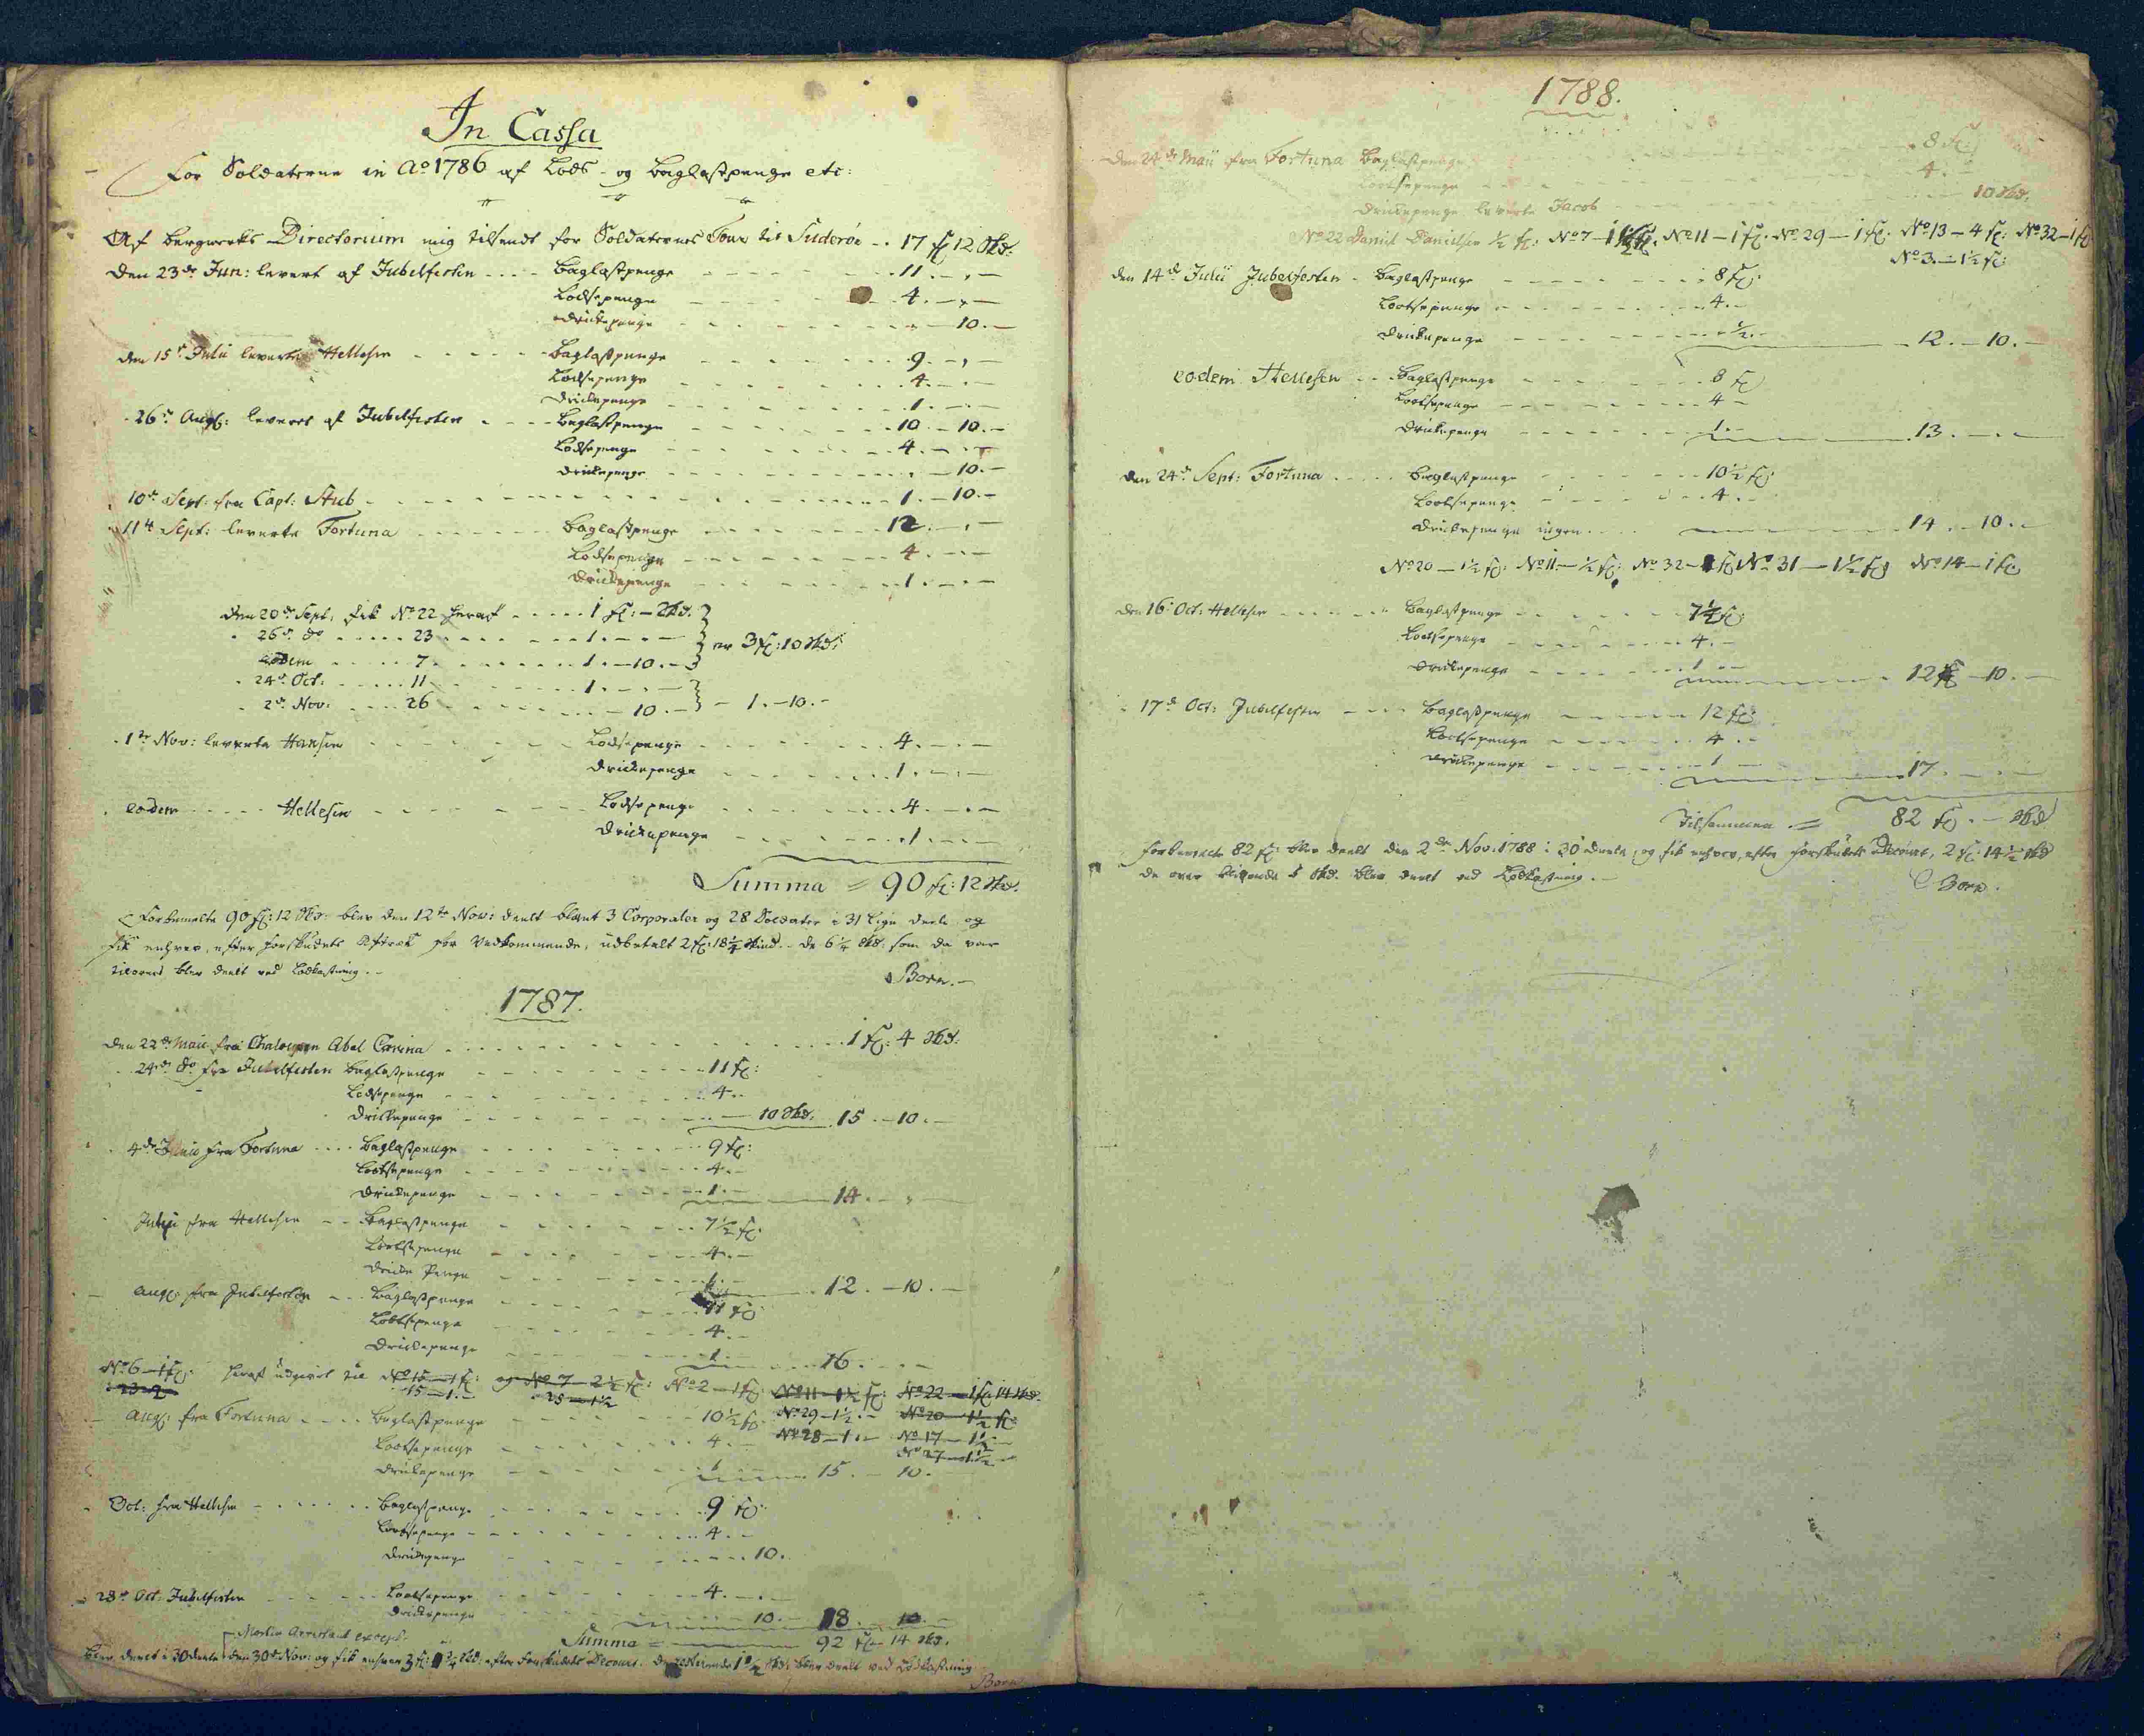 In Cassa
For Soldaterne in Ao 1786 af Lods- og Baglastpenge etc:
Af Bergwerks Directorium mig tilsendt for Soldaternes Tour til Suderöe - . 17 fl: 12 skd:
Den 23de Jun: levert af Jubelfesten .... Baglastpenge - - - 11. - „ -
Lodsepenge - - - 4. - „ -
Drickepenge - - - „ - 10. -
Den 15de Julii leverte Hellesen - - - Baglastpenge - - - 9. - „ -
Lodsepenge - - - 4. - . -
Drickepenge - - - 1. - . -
- 26de Aug: levert af Jubelfesten - - - Baglastpenge - - - 10. - 10. -
Lodsepenge - - - 4. - . -
Drickepenge - - - . - 10. -
10de Sept: fra Capt: Stub - - - 1. - 10. -
11te Sept: leverte Fortuna - - - Baglastpenge - - - 12. - . -
Lodsepenge - - - 4. - . -
Drickepenge - - - 1. - . -
Den 20de Sept: fik No 22 heraf - - - 1 fl: - skd:
- 26de do - - - 23 - - - 1. - . - er 3 fl: 10 skd:
eodem - - - 7. - - - 1. - 10. -
- 24de Oct: - - - 11 - - - 1. - . -
- 2de Nov: - - - 26 - - - - 10. - - 1. - 10. -
- 1te Nov: leverte Hansen - - - Lodsepenge - - - 4. - . -
Drickepenge - - - 1. - . -
. eodem - - - Hellesen - - - Lodsepenge - - - 4. - . -
Drickepenge - - - 1. - . -
Summa = 90 fl: 12 skd.
Forbemelte 90 fl: 12 skd: blev den 12te Nov: deelt blant 3 Corporaler og 28 Soldater i 31 lige deele og
fik enhver, efter forskudets Aftræk for Vedkommende, udbetalt 2 fl: 18 1/4 Skind. - de 6 1/4 skd: som da var
tilovers blev deelt ved Lodkastning. -
Born. -
1787.
Den 22de Maii fra Chaloupen Abel Carina - - - 1 fl: 4 skd:
- 24de do fra Jubelfesten Baglastpenge - - - 11 fl:
Lodsepenge - - - 4. -
Drickepenge - - - . - 10 skd. 15. - 10. -
4de Junii fra Fortuna .... Baglastpenge - - - 9 fl:
Lootsepenge - - - 4. -
Drickepenge - - - 1. - 14. - . -
Julii fra Hellesen - - Baglastpenge - - - 7 1/2 fl:
Lootsepenge - - - 4. -
Dricke Penge - - - 1. - 12. - 10. -
Aug: fra Jubelfesten - - Baglastpenge - - - 11 fl:
Lootsepenge - - - 4. -
Drickepenge - - - 1. - 16. - . -
No 6 - 1 fl: heraf udgivet til No 16 - 1 fl: og No 7 - 2 1/2 fl: No 2 - 1 fl: No 11 - 1 1/2 fl: No 22 - 1 fl: 14 skd.
23 - 2 15 - 1. - 25 - 1 1/2
Aug: fra Fortuna - - - Baglastpenge - - - 10 1/2 fl: No 29 - 1 1/2. - No 20 - 1 1/2 fl:
Lootsepenge - - - 4. - No 28 - 1. - No 17 - 1 1/2 -
No 27 - 1 1/2 -
Drickepenge - - - 1 - 15. - 10. -
- Oct: fra Hellesen - - - Baglastpenge - - - 9 fl:
Lootsepenge - - - 4. -
Drickepenge - - - 10.
- 23de Oct: Jubelfesten - - - Lootsepenge - - - 4. - . -
Drickepenge - - - 10. - 18. 10. -
Summa = 92 fl - 14 skd.
blev deelt i 30 deele den 30de Nov: og fik enhver 3 fl: efter Forskudets Decourt. blev deelt ved Lodkastning
Born
1788.
Den 24de Maii fra Fortuna Baglastpenge - - - 8 fl:
Lootsepenge - - - 4. -
Drickepenge leverte Jacob - - - 10 skd.
No 22 Daniel Danielsen 1/2 fl: No 7 - 1 1/2 fl: No 11 - 1 fl: No 29 - 1 fl: No 13 - 4 fl: No 32 - 1 fl
No 3. - 1 1/2 fl:
Den 14de Julii Jubelfesten - Baglastpenge - - - 8 fl:
Lootsepenge - - - 4. -
Drickepenge - - - 1/2. - 12. - 10. -
eodem Hellesen - - Baglastpenge - - - 8 fl
Lootsepenge - - - 4 -
Drickepenge - - - 1. - 13. - . -
Den 24de Sept: Fortuna - - - Baglastpenge - - - 10 1/2 fl:
Lootsepenge - - - 4. -
Drickepenge ingen - - - 14. - 10. -
No 20 - 1 1/2 fl: No 11. - 1/2 fl: No 32 - fl No 31 - 1 1/2 fl No 14 - 1 fl
Den 16 Oct: Hellesen - - - Baglastpenge - - - 7 1/2 fl:
Lootsepenge - - - 4. -
Drickepenge - - - 1 - 12 - 10. -
- 17de Oct: Jubelfesten - - - Baglastpenge - - - 12 fl:
Lootsepenge - - - 4. -
Drickepenge - - - 1 - 17. - . -
Tilsammen = 82 fl. - skd
Forbemelte 82 fl: blev deelt den 2de Nov: 1788 i 30 deele, og fik enhver, efter forskudets Decourt, 2 fl: 14 1/2 skd
de over blivende 5 skd. blev deelt ved Lodkastning. -
Born.